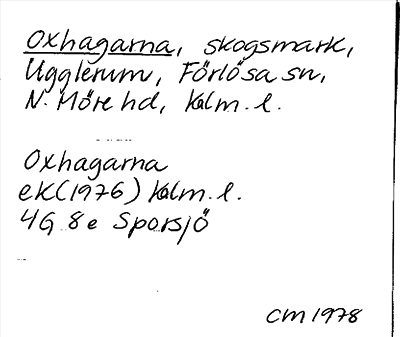 Oxhagarna, skogsmark,
Ugglerum, Förlösa sn,
N. Möre hd, Kalm. l.
Oxhagarna
ek (1976) Kalm. l.
4G 8e Sporsjö
CM 1978